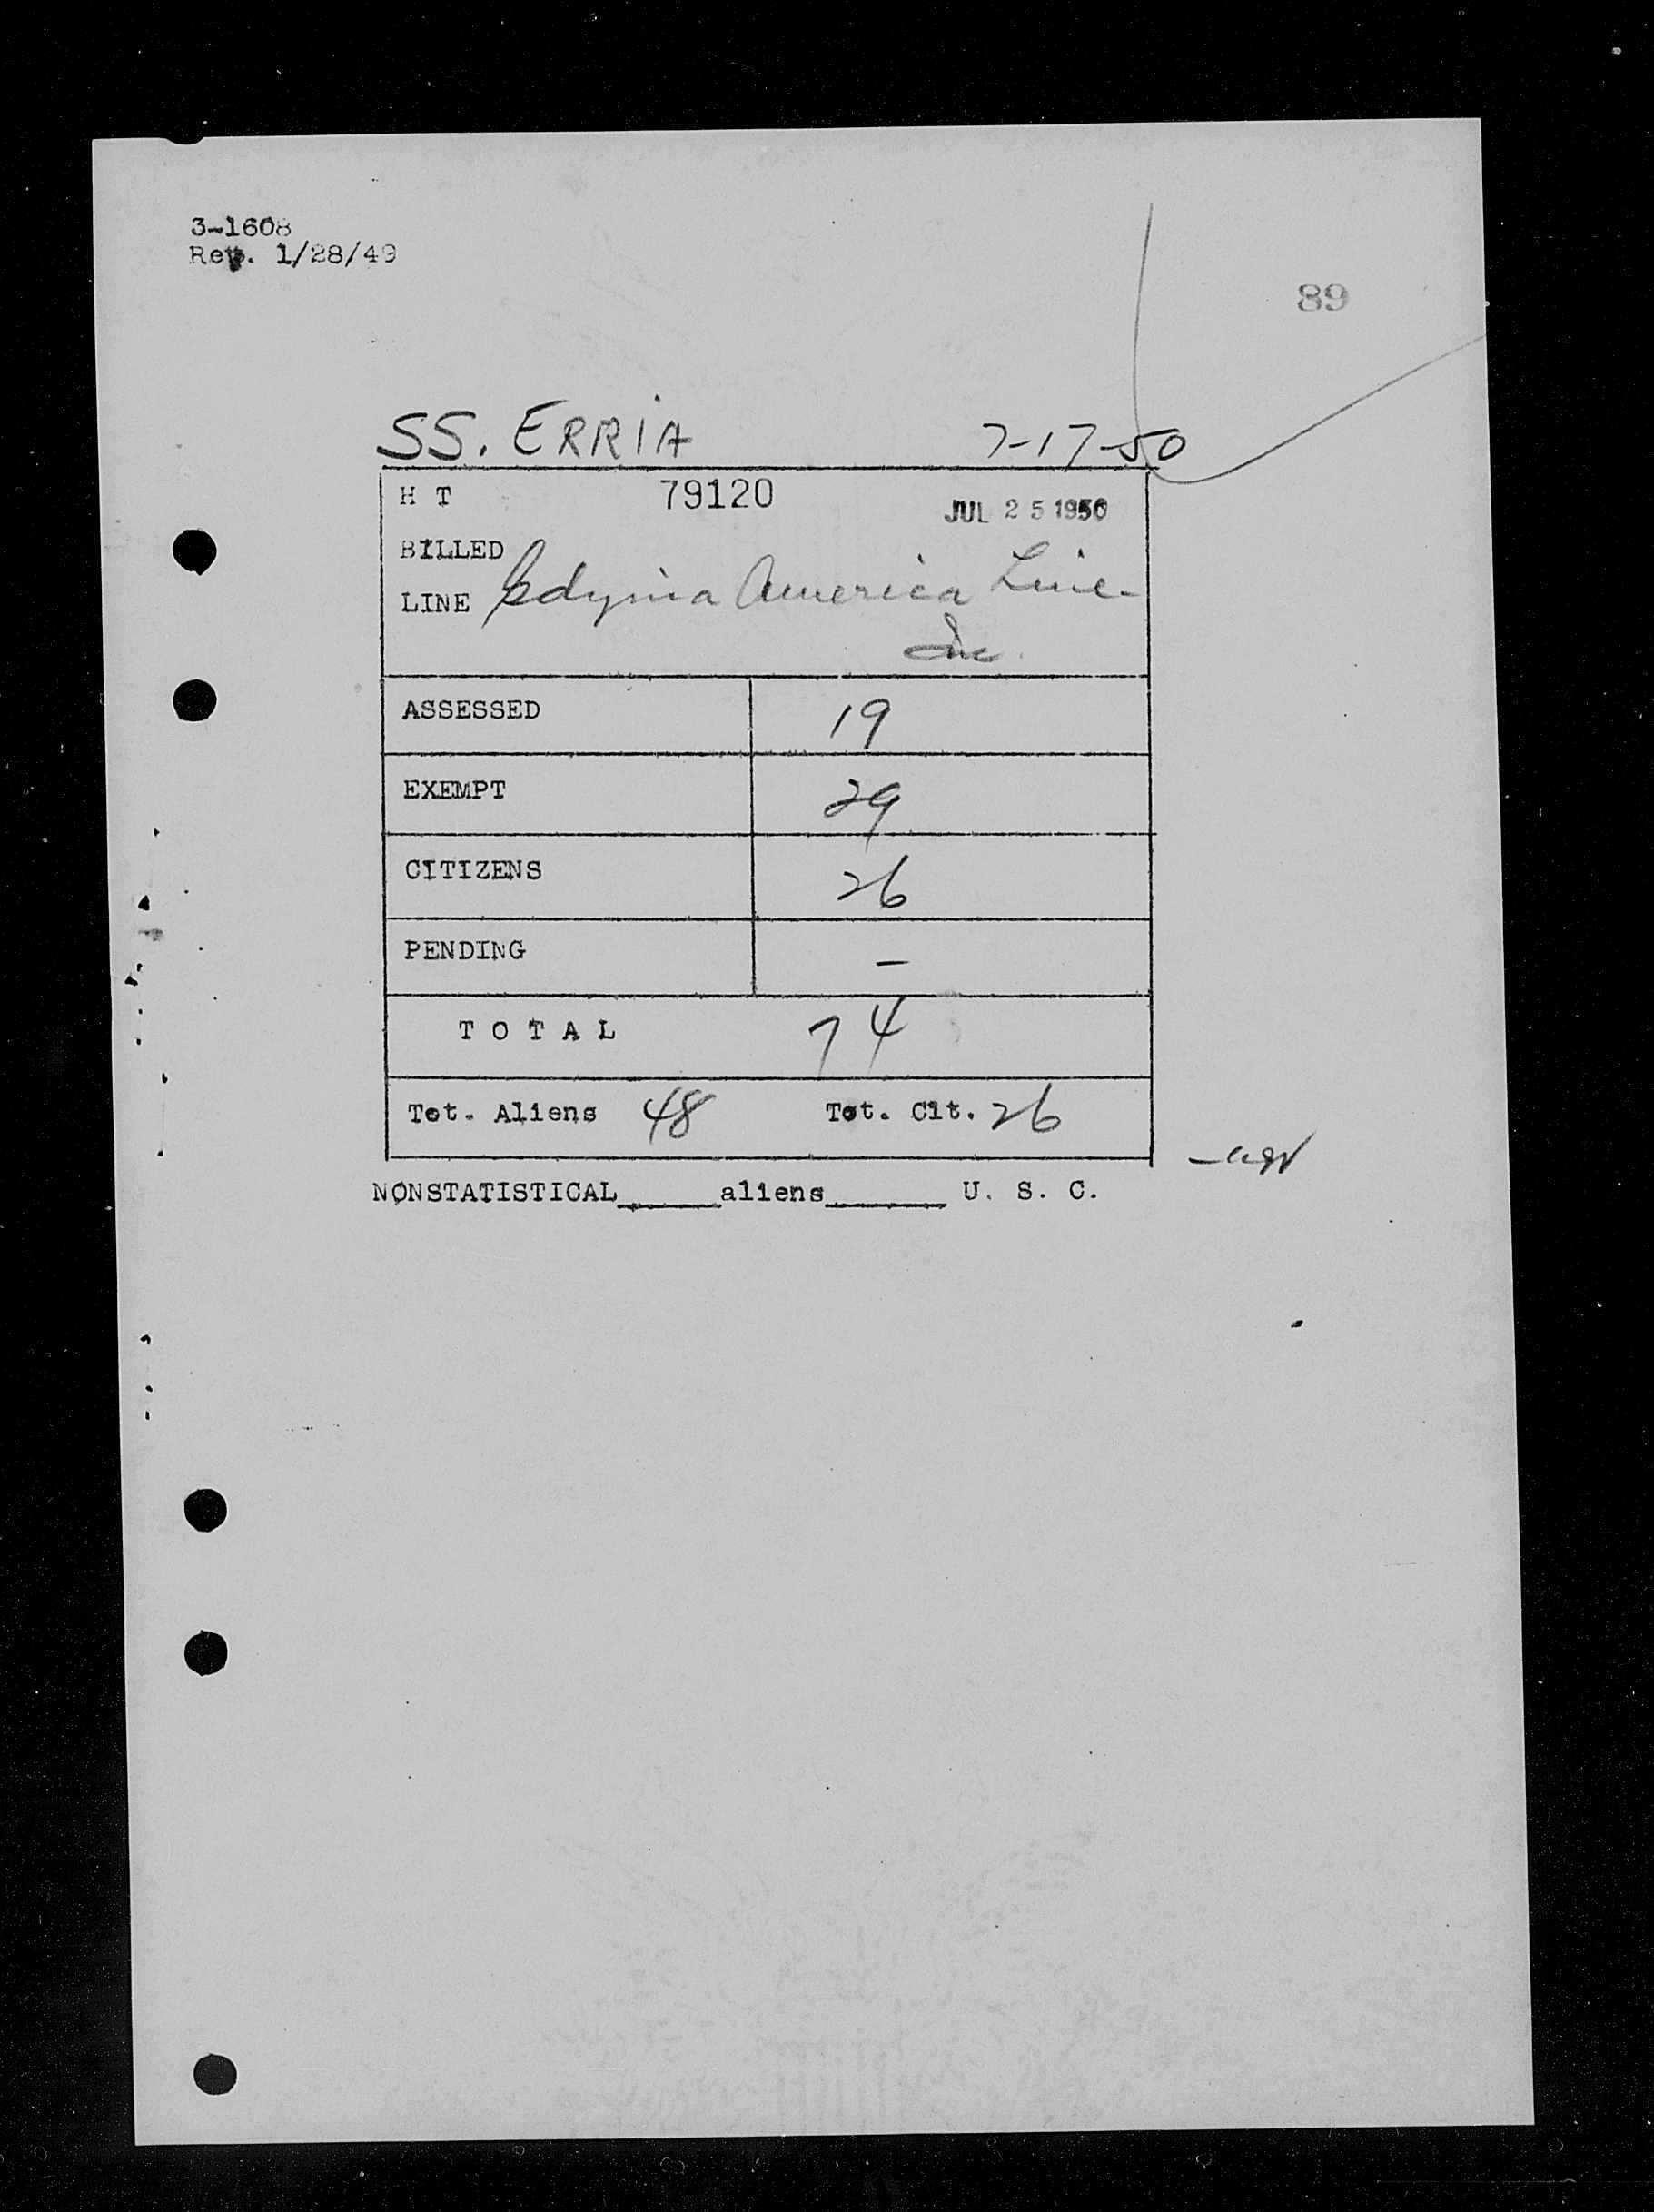 3-1608
Rev. 1/28/49
89
SS. ERRIA 7-17-50
H T 79120 JUL 25 1950
BILLED
LINE Gdynia America Line
Inc.
ASSESSED 19
EXEMPT 29
CITIZENS 26
PENDING –
TOTAL 74
Tot. Aliens 48 Tot. Cit. 26
NONSTATISTICAL_____aliens______ U. S. C.